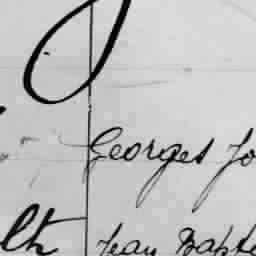 Georges Jo
lh Jean Bapt